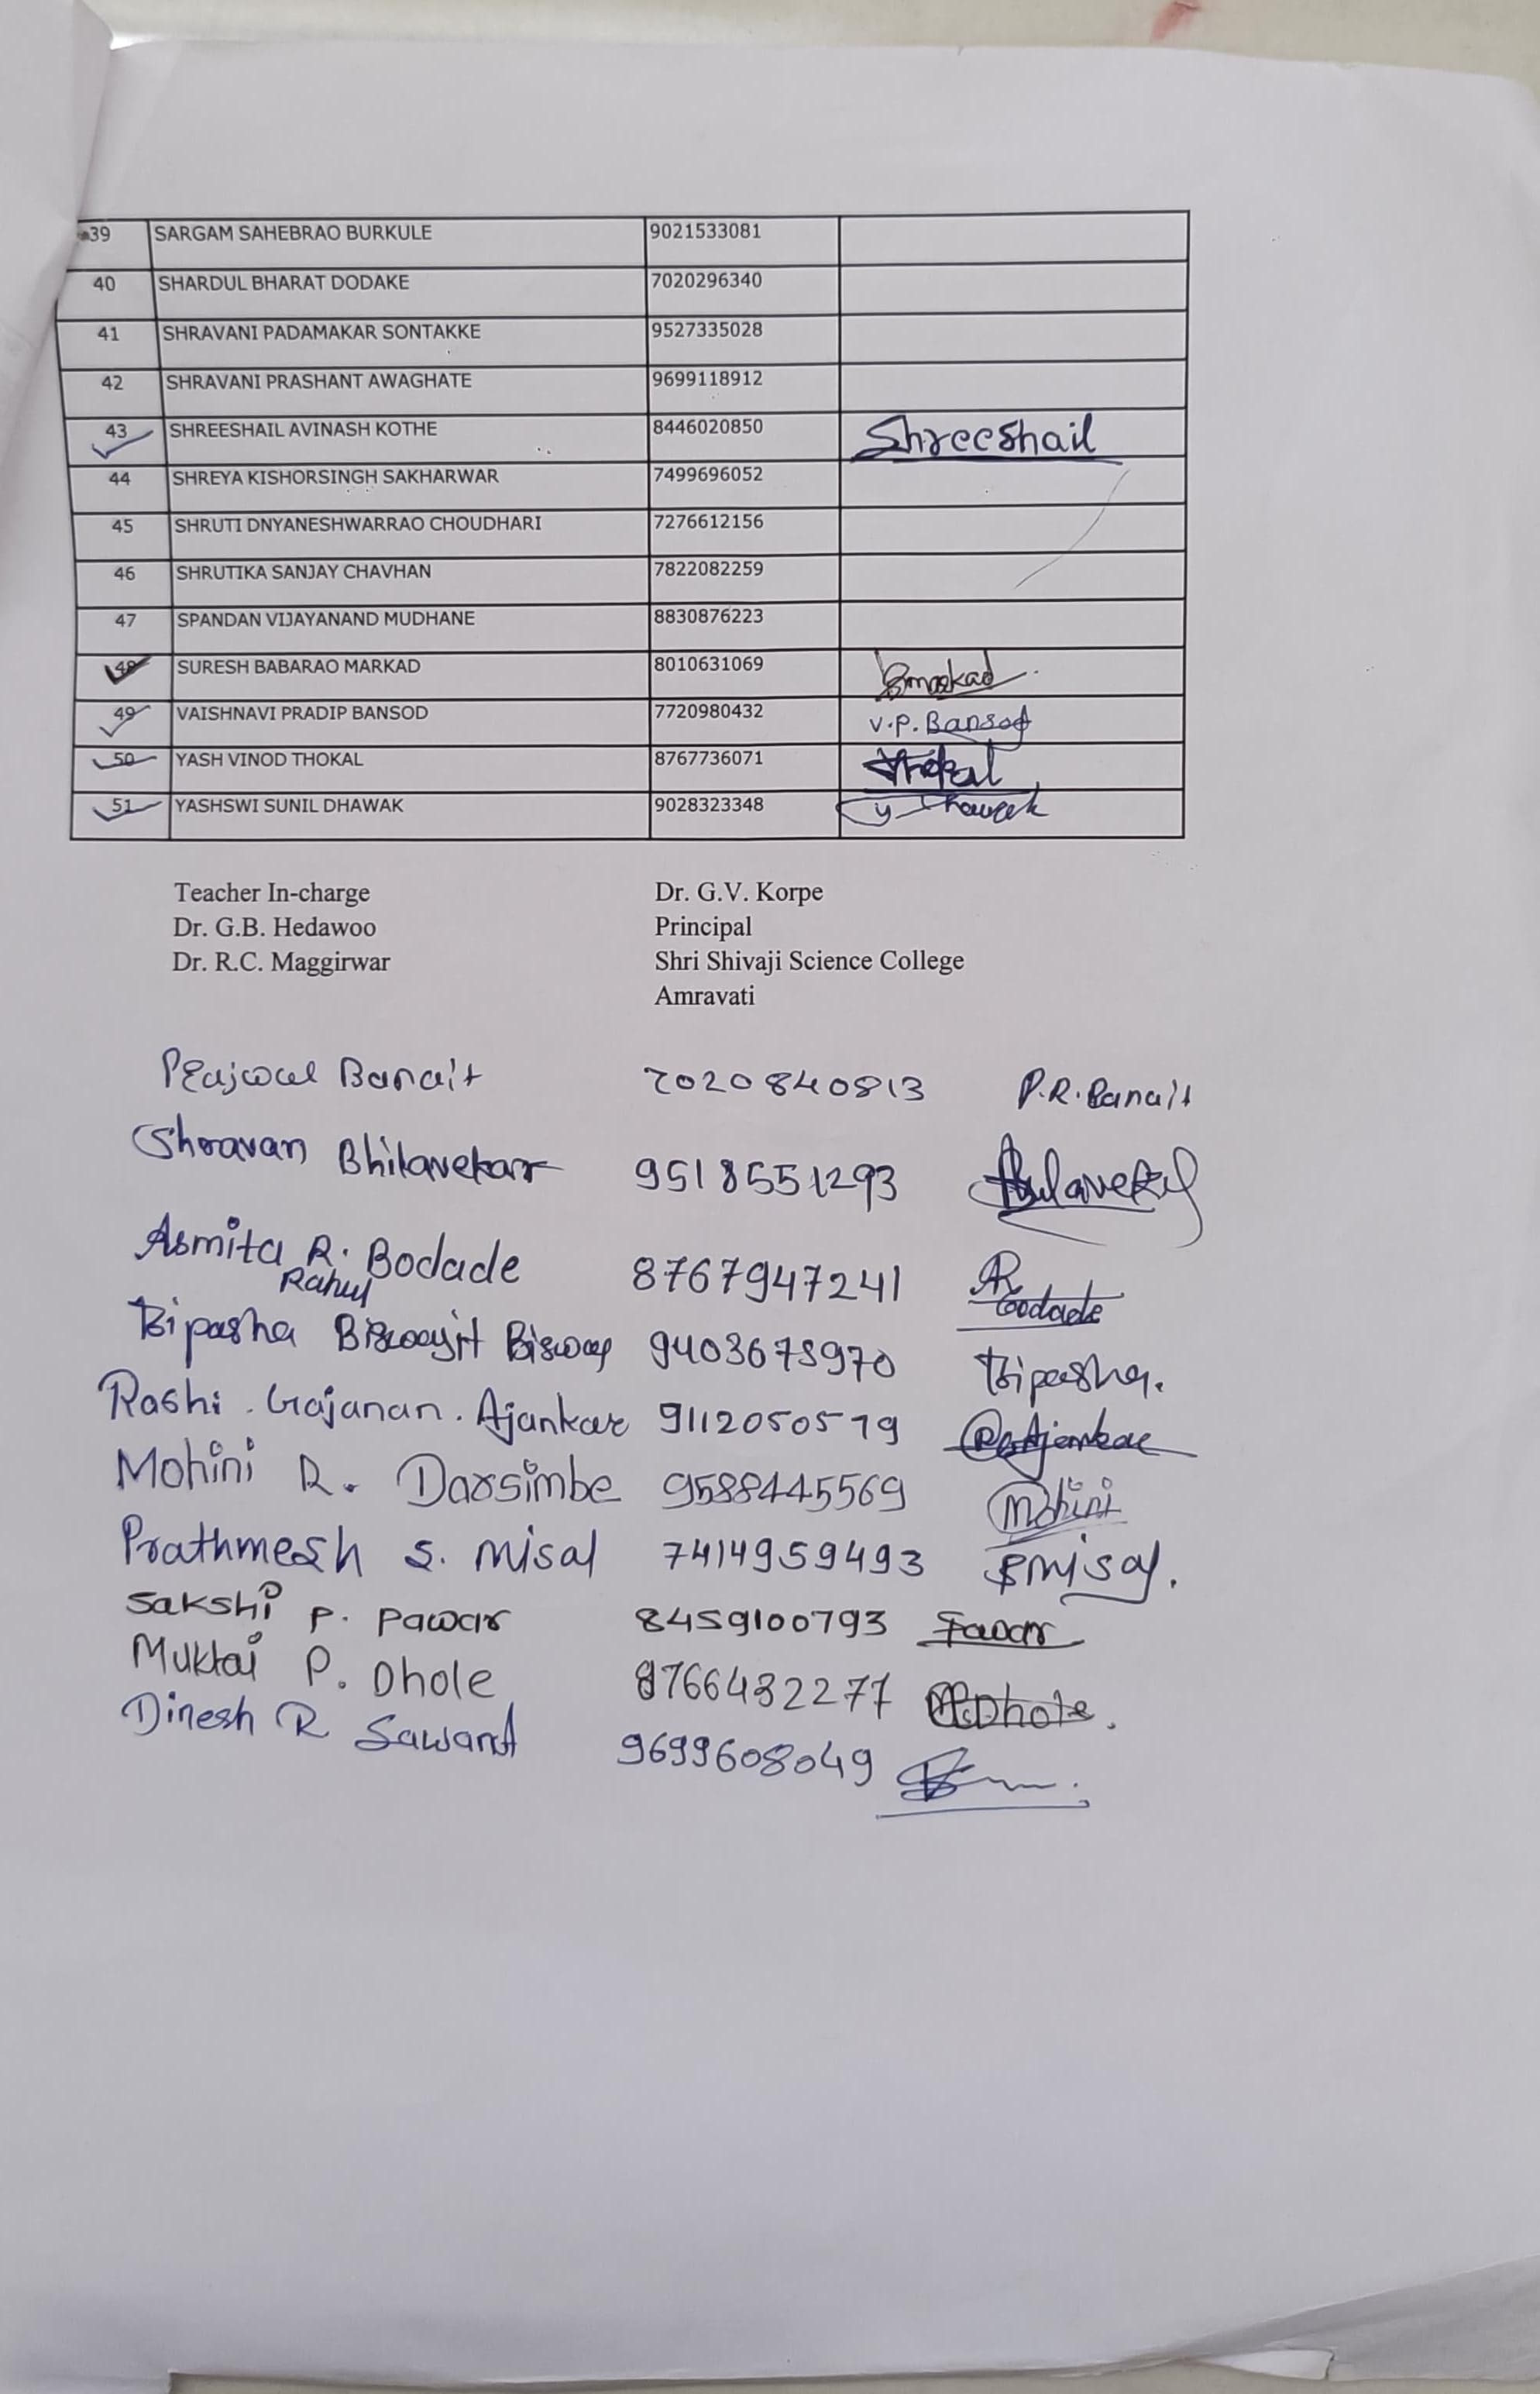 39 SARGAM SAHEBRAO BURKULE 9021533081
40 SHARDUL BHARAT DODAKE 7020296340
41 SHRAVANI PADAMAKAR SONTAKKE 9527335028
42 SHRAVANI PRASHANT AWAGHATE 9699118912
43 SHREESHAIL AVINASH KOTHE 8446020850 Shreeshail
44 SHREYA KISHORSINGH SAKHARWAR 7499696052
45 SHRUTI DNYANESHWARRAO CHOUDHARI 7276612156
46 SHRUTIKA SANJAY CHAVHAN 7822082259
47 SPANDAN VIJAYANAND MUDHANE 8830876223
48 SURESH BABARAO MARKAD 8010631069 Smarkad
49 VAISHNAVI PRADIP BANSOD 7720980432 V.P. Bansod
50 YASH VINOD THOKAL 8767736071 Thokal
51 YASHSWI SUNIL DHAWAK 9028323348
Teacher In-charge Dr. G.V. Korpe
Dr. G.B. Hedawoo Principal
Dr. R.C. Maggirwar Shri Shivaji Science College
Amravati
Prajwal Banait 7020840813 P.R.Banait
Shravan Bhilavekar 9518551293
Asmita R. Bodade 8767947241 AR Bodade
Rahul
Bipasha Biswajit Biswas Bipasha.
Rashi . Gajanan . Ajankar 9112050579
Mohini R. Darsimbe 9588445569 Mohini
Prathmesh S. Misal 7414959493 Misal.
Sakshi P. Pawar 8459100793 Pawar
Muktai P. Dhole 8766482277 Dhole.
Dinesh R Sawant 9699608049